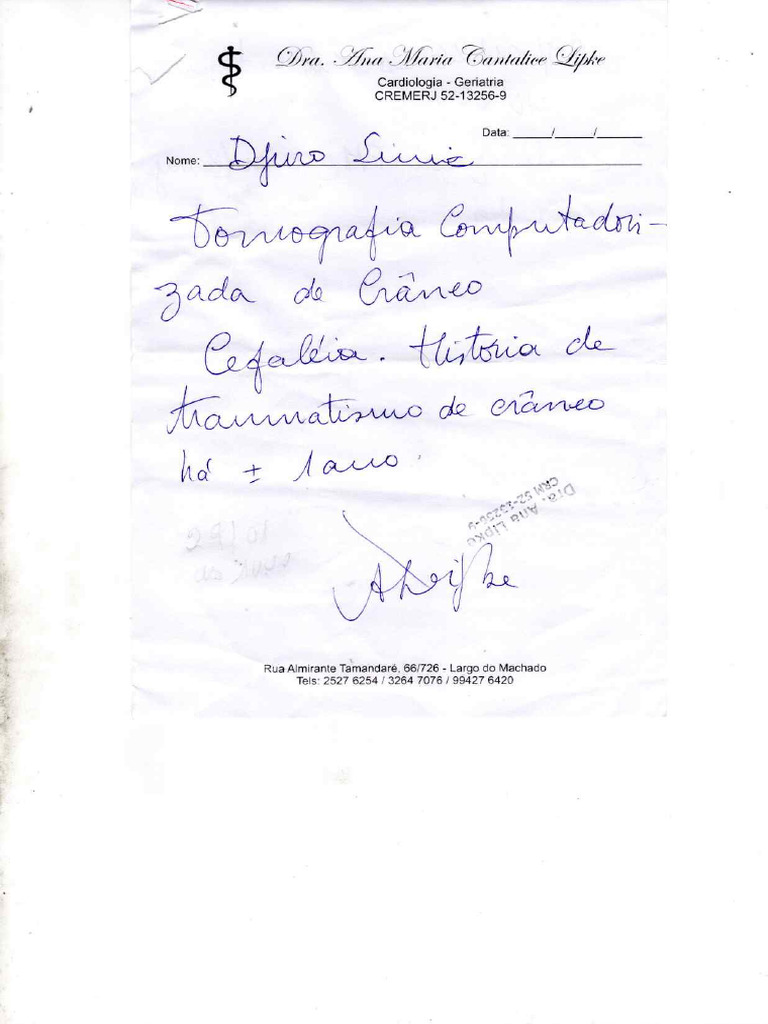 Dra. Ana Maria Cantalice Lipke
Cardiologia - Geriatria
CREMERJ 52-13256-9
Data: ____/____/____
Nome: Djuro
Tomografia Computadori-
zada de Crâneo
Cefaléia. História de
traumatismo de crâneo
há ± 1 ano.
Dra. Ana Lipke
CRM 52-13256-9
ALipke
Rua Almirante Tamandaré, 66/726 - Largo do Machado
Tels: 2527 6254 / 3264 7076 / 99427 6420